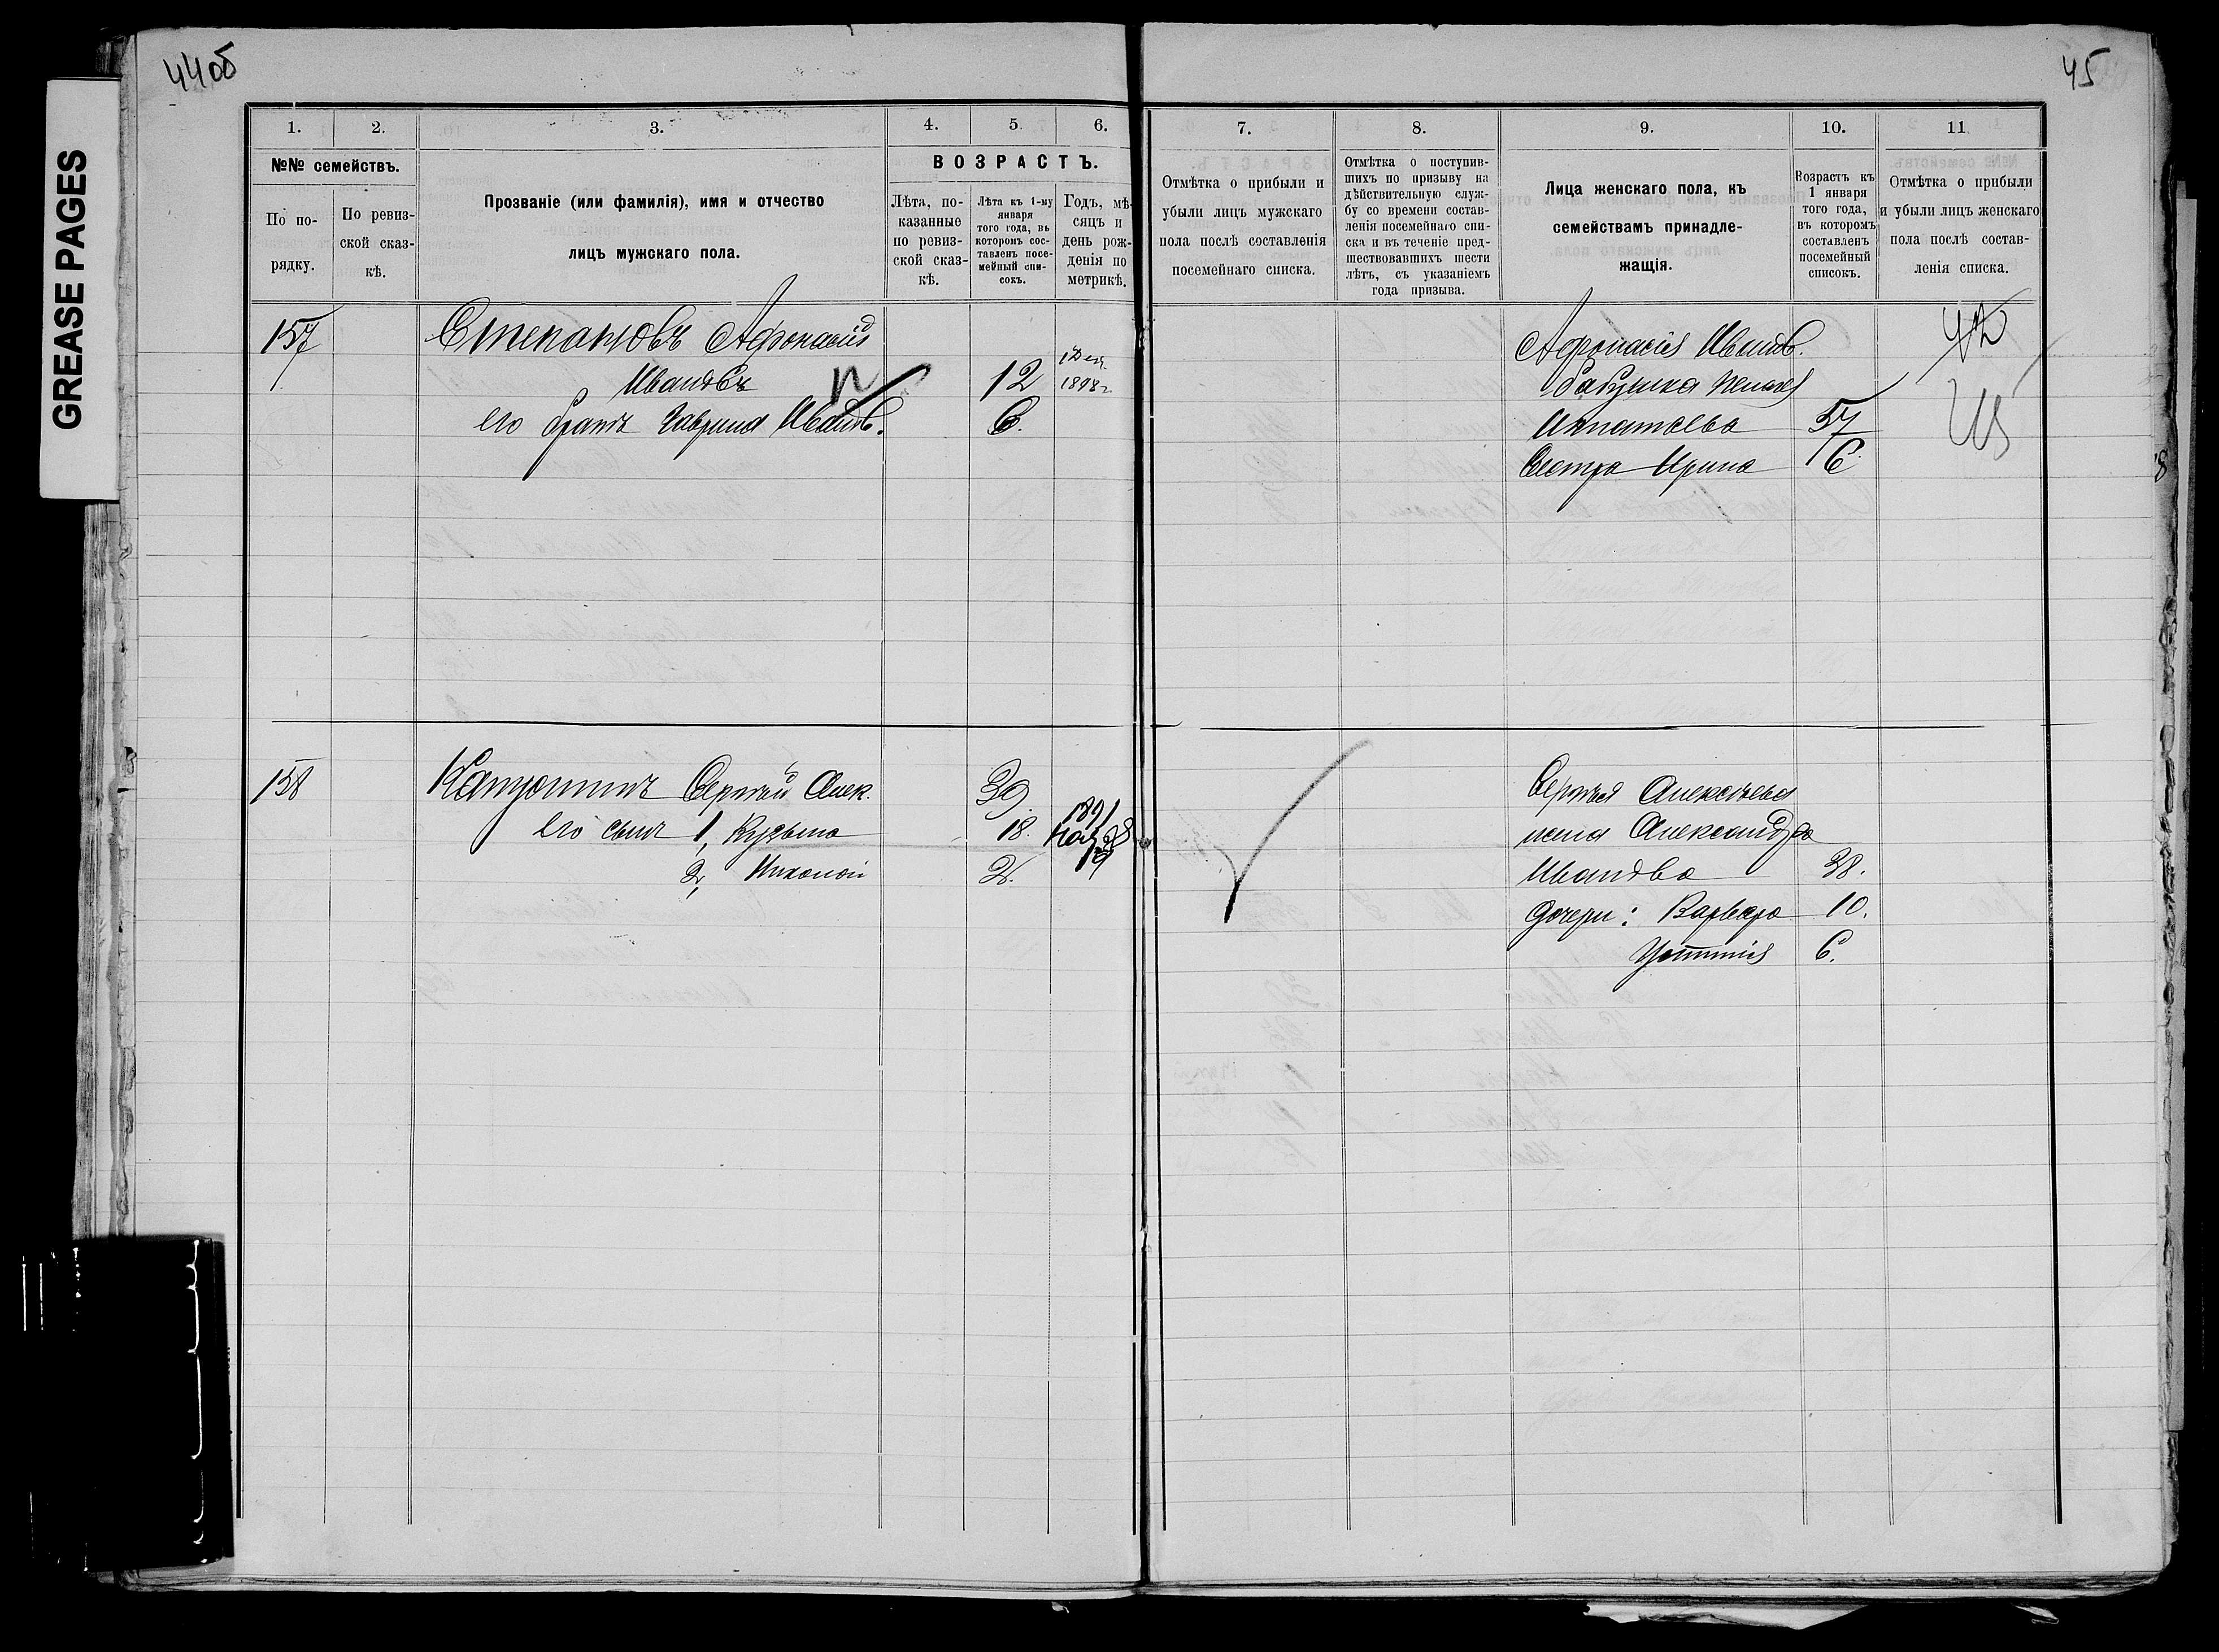 44об
45
GREASE PAGES
1.
2.
3.
4.
5.
6.
7.
8.
9.
10.
11
№№ семействъ.
По по-
рядку.
По ревиз-
ской сказ-
кѣ.
Прозваніе (или фамилія), имя и отчество
лицъ мужскаго пола.
ВОЗРАСТЪ.
Лѣта, по-
казанные
по ревиз-
ской сказ-
кѣ.
Лѣта къ 1-му
января
того года, въ
которомъ сос-
тавленъ посе-
мейный спи-
сокъ.
Годъ, мѣ-
сяцъ и
день рож-
денія по
метрикѣ.
Отмѣтка о прибыли и
убыли лицъ мужскаго
пола послѣ составленія
посемейнаго списка.
Отмѣтка о поступив-
шихъ по призыву на
дѣйствительную служ-
бу со времени состав-
ленія посемейнаго спи-
ска и въ теченіе пред-
шествовавшихъ шести
лѣтъ, съ указаніемъ
года призыва.
Лица женскаго пола, къ
семействамъ принадле-
жащія.
Возрастъ къ
1 января
того года,
въ которомъ
составленъ
посемейный
списокъ.
Отмѣтка о прибыли
и убыли лицъ женскаго
пола послѣ состав-
ленія списка.
157
Степановъ Афонасій
Ивановъ
12
1898г
его братъ Гаврила Иванов.
6.
Афонасія Иванов.
бабушка
Ипатьева 57
Сестра Ирина 6
42
158
Сергѣй Алек. 39.
его сынъ 1, Кузьма 18. 1891
2, Николай 2.
Сергѣя Алексѣева
жена Александра
Иванова 38.
Дочери: Варвара 10.
Устинія 6.